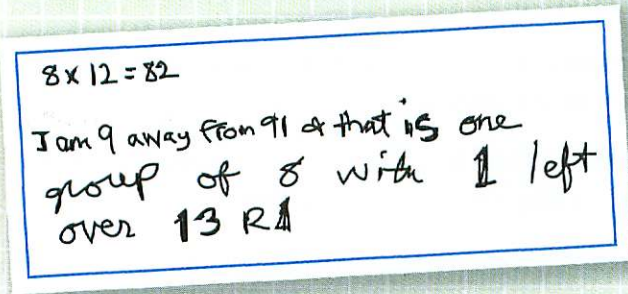 8 x 12 = 82
I am 9 away from 91 & that is one
group of 8 with 1 left
over 13 R1